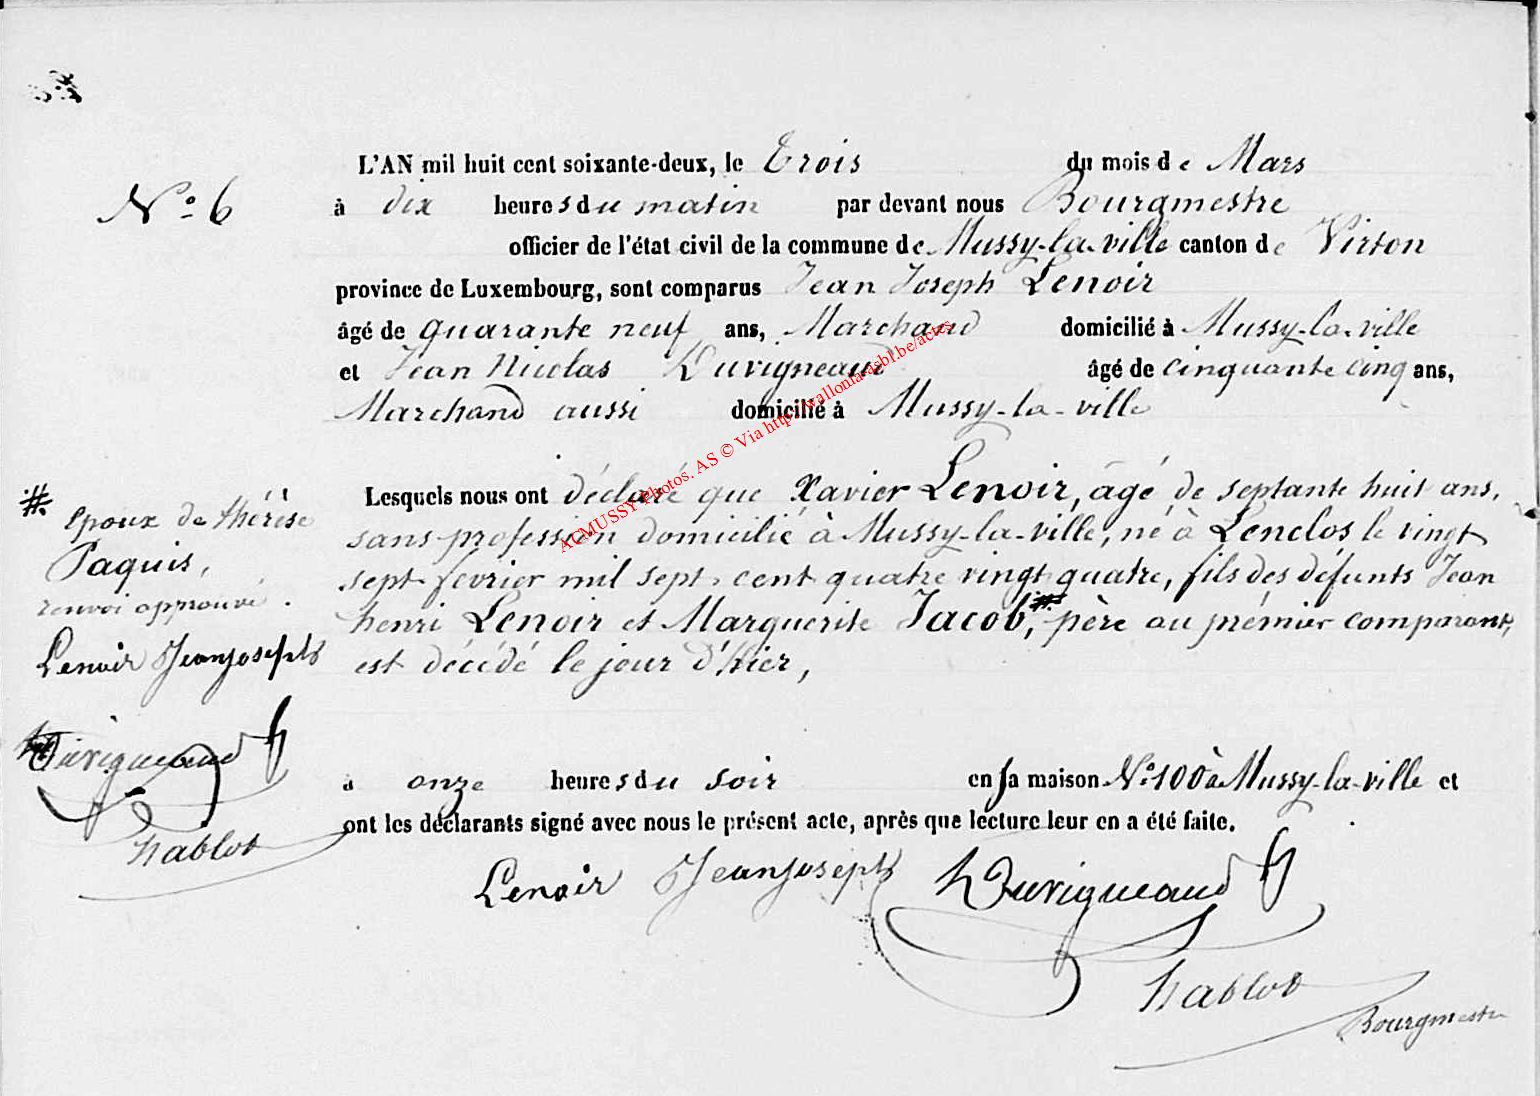 N.o 6
L'AN mil huit cent soixante-deux, le Trois du mois de Mars
à dix heures du matin par devant nous Bourgmestre
officier de l'état civil de la commune de Mussy-la-ville canton de Virton
province de Luxembourg, sont comparus Jean Joseph Lenoir
âgé de quarante neuf ans, Marchand domicilié à Mussy-la-ville
et Jean Nicolas Duvigneaud âgé de cinquante cinq ans,
Marchand aussi domicilié à Mussy-la-ville
Lesquels nous ont déclaré que Xavier Lenoir, âgé de septante huit ans,
sans profession domicilié à Mussy-la-ville, né à Lenclos le vingt
sept fevrier mil sept cent quatre vingt quatre, fils des défunts Jean
henri Lenoir et Marguerite Jacob,# père au prémier comparant,
est décédé le jour d'hier,
à onze heures du soir en sa maison N.o 100 à Mussy-la-ville et
ont les déclarants signé avec nous le présent acte, après que lecture leur en a été faite.
Lenoir Jeanjoseph Duvigneaud
hablot
Bourgmestre
#
Epoux de thérèse
Paquis,
renvoi approuvé.
Lenoir Jeanjoseph
Duvigneaud
hablot
ACMUSSY-Photos. AS © Via http://wallonia-asbl.be/actes